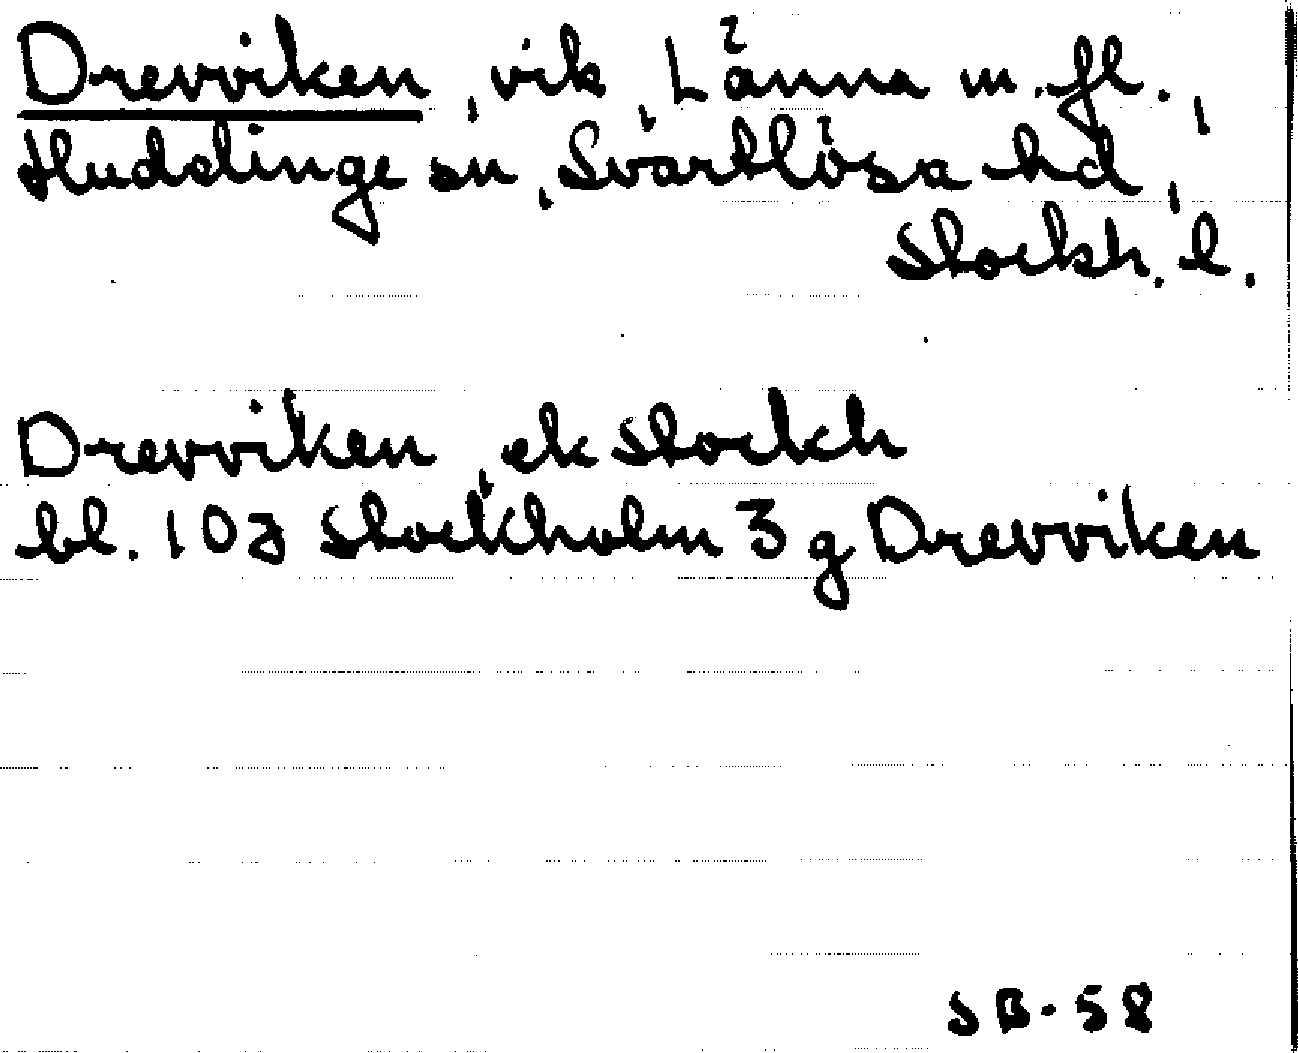 Drevviken, vik, Länna m.fl.,
Huddinge sn, Svartlösa hd,
Stockh. l.
Drevviken, ek Stockh
bl. 10J Stockholm 3g Drevviken
SB-58